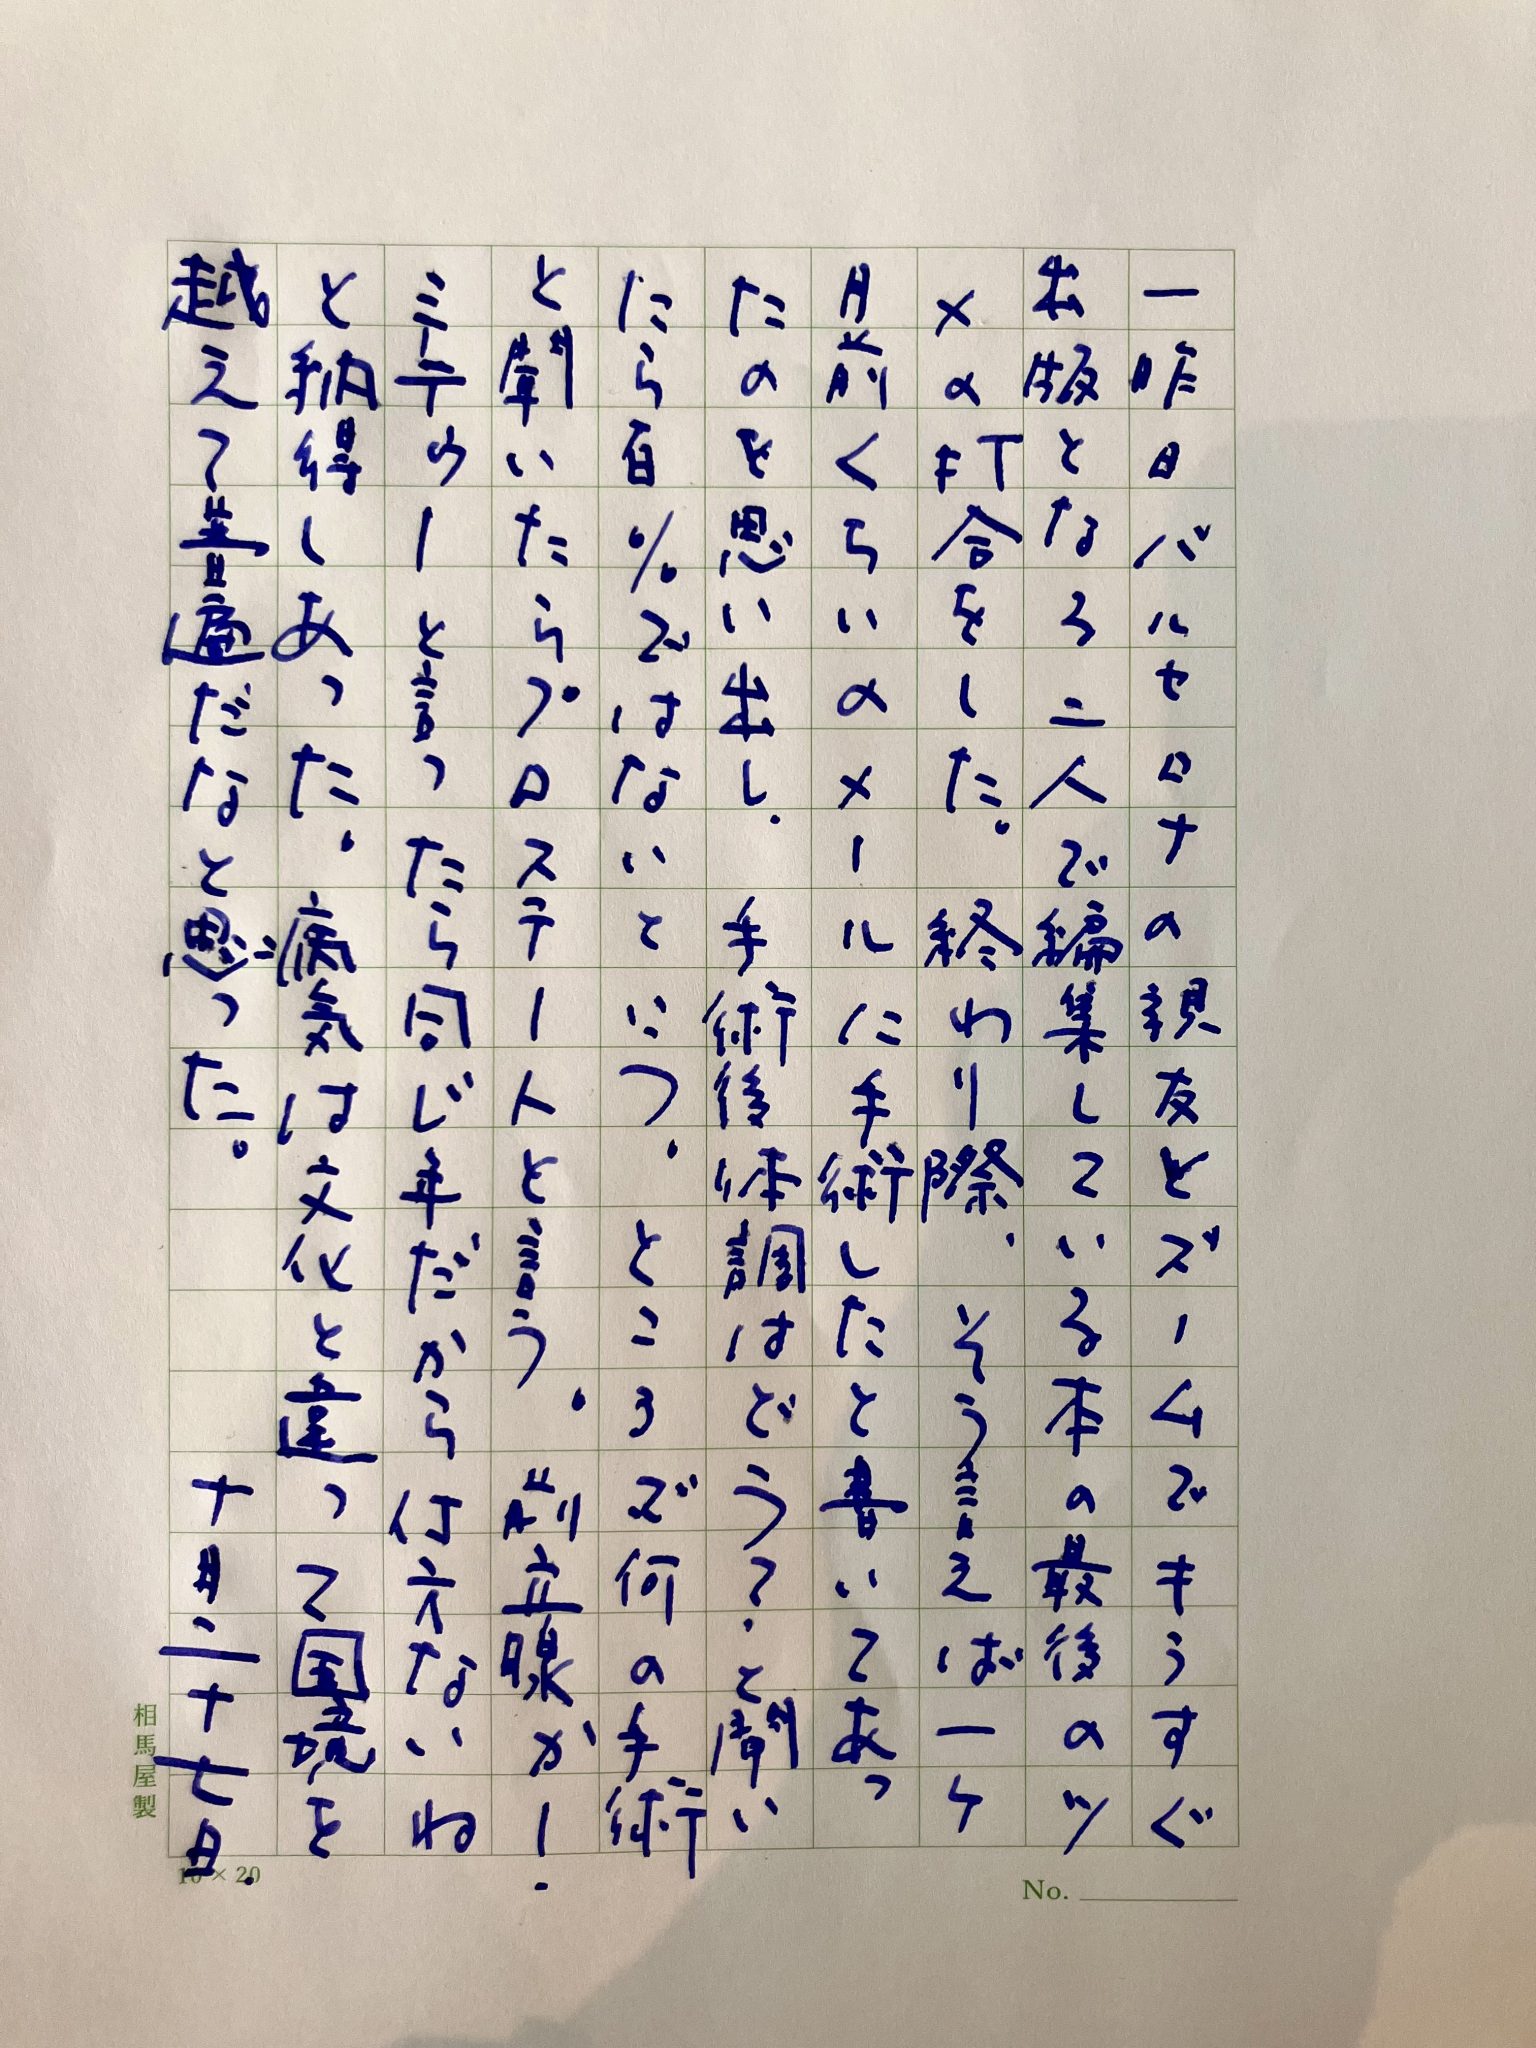 一昨日バルセロナの親友とズームでもうすぐ
出版となる二人で編集している本の最後のツ
メの打合をした。終わり際、そう言えば一ケ
月前くらいのメールに手術したと書いてあっ
たのを思い出し、手術後体調はどう?、と聞い
たら百%ではないという、ところで何の手術
と聞いたらプロステートと言う。前立腺かー。
ミーテウーと言ったら同じ年だから仕方ないね
と納得しあった。病気は文化と違って国境を
越えて普遍だなと思った。 十月二十七日.
相馬屋製
10 × 20
No.